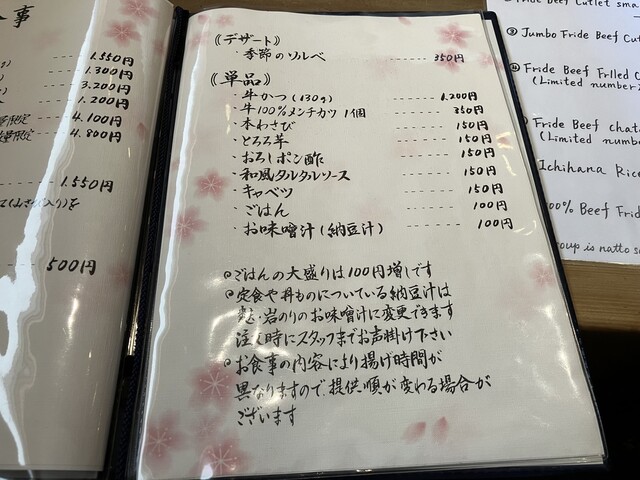 事
1.550円
1.300円
3.200円
1.200円
4.100円
4.800円
1.550円
500円
《デザート》
・季節のソルベ ------ 350円
《単品》
・牛かつ(130g) ------ 1.200円
・牛100%メンチカツ 1個 ------ 350円
・本わさび ------ 150円
・とろろ芋 ------ 150円
・おろしポン酢 ------ 150円
・和風タルタルソース ------ 150円
・キャベツ ------ 150円
・ごはん ------ 100円
・お味噌汁(納豆汁) ------ 100円
◎ごはんの大盛りは100円増しです
◎定食や丼ものについている納豆汁は
麩・岩のりのお味噌汁に変更できます
注文時にスタッフまでお声掛け下さい
◎お食事の内容により揚げ時間が
異なりますので、提供順が変わる場合が
ございます
Fride Beef Cutlet sma
③ Jumbo Fride Beef Cut
④ Fride Beef Frlled C
(Limited number
Fride Beef chata
(Limited numbe
Ichihana Rice
00% Beef Frid
oup is natto so